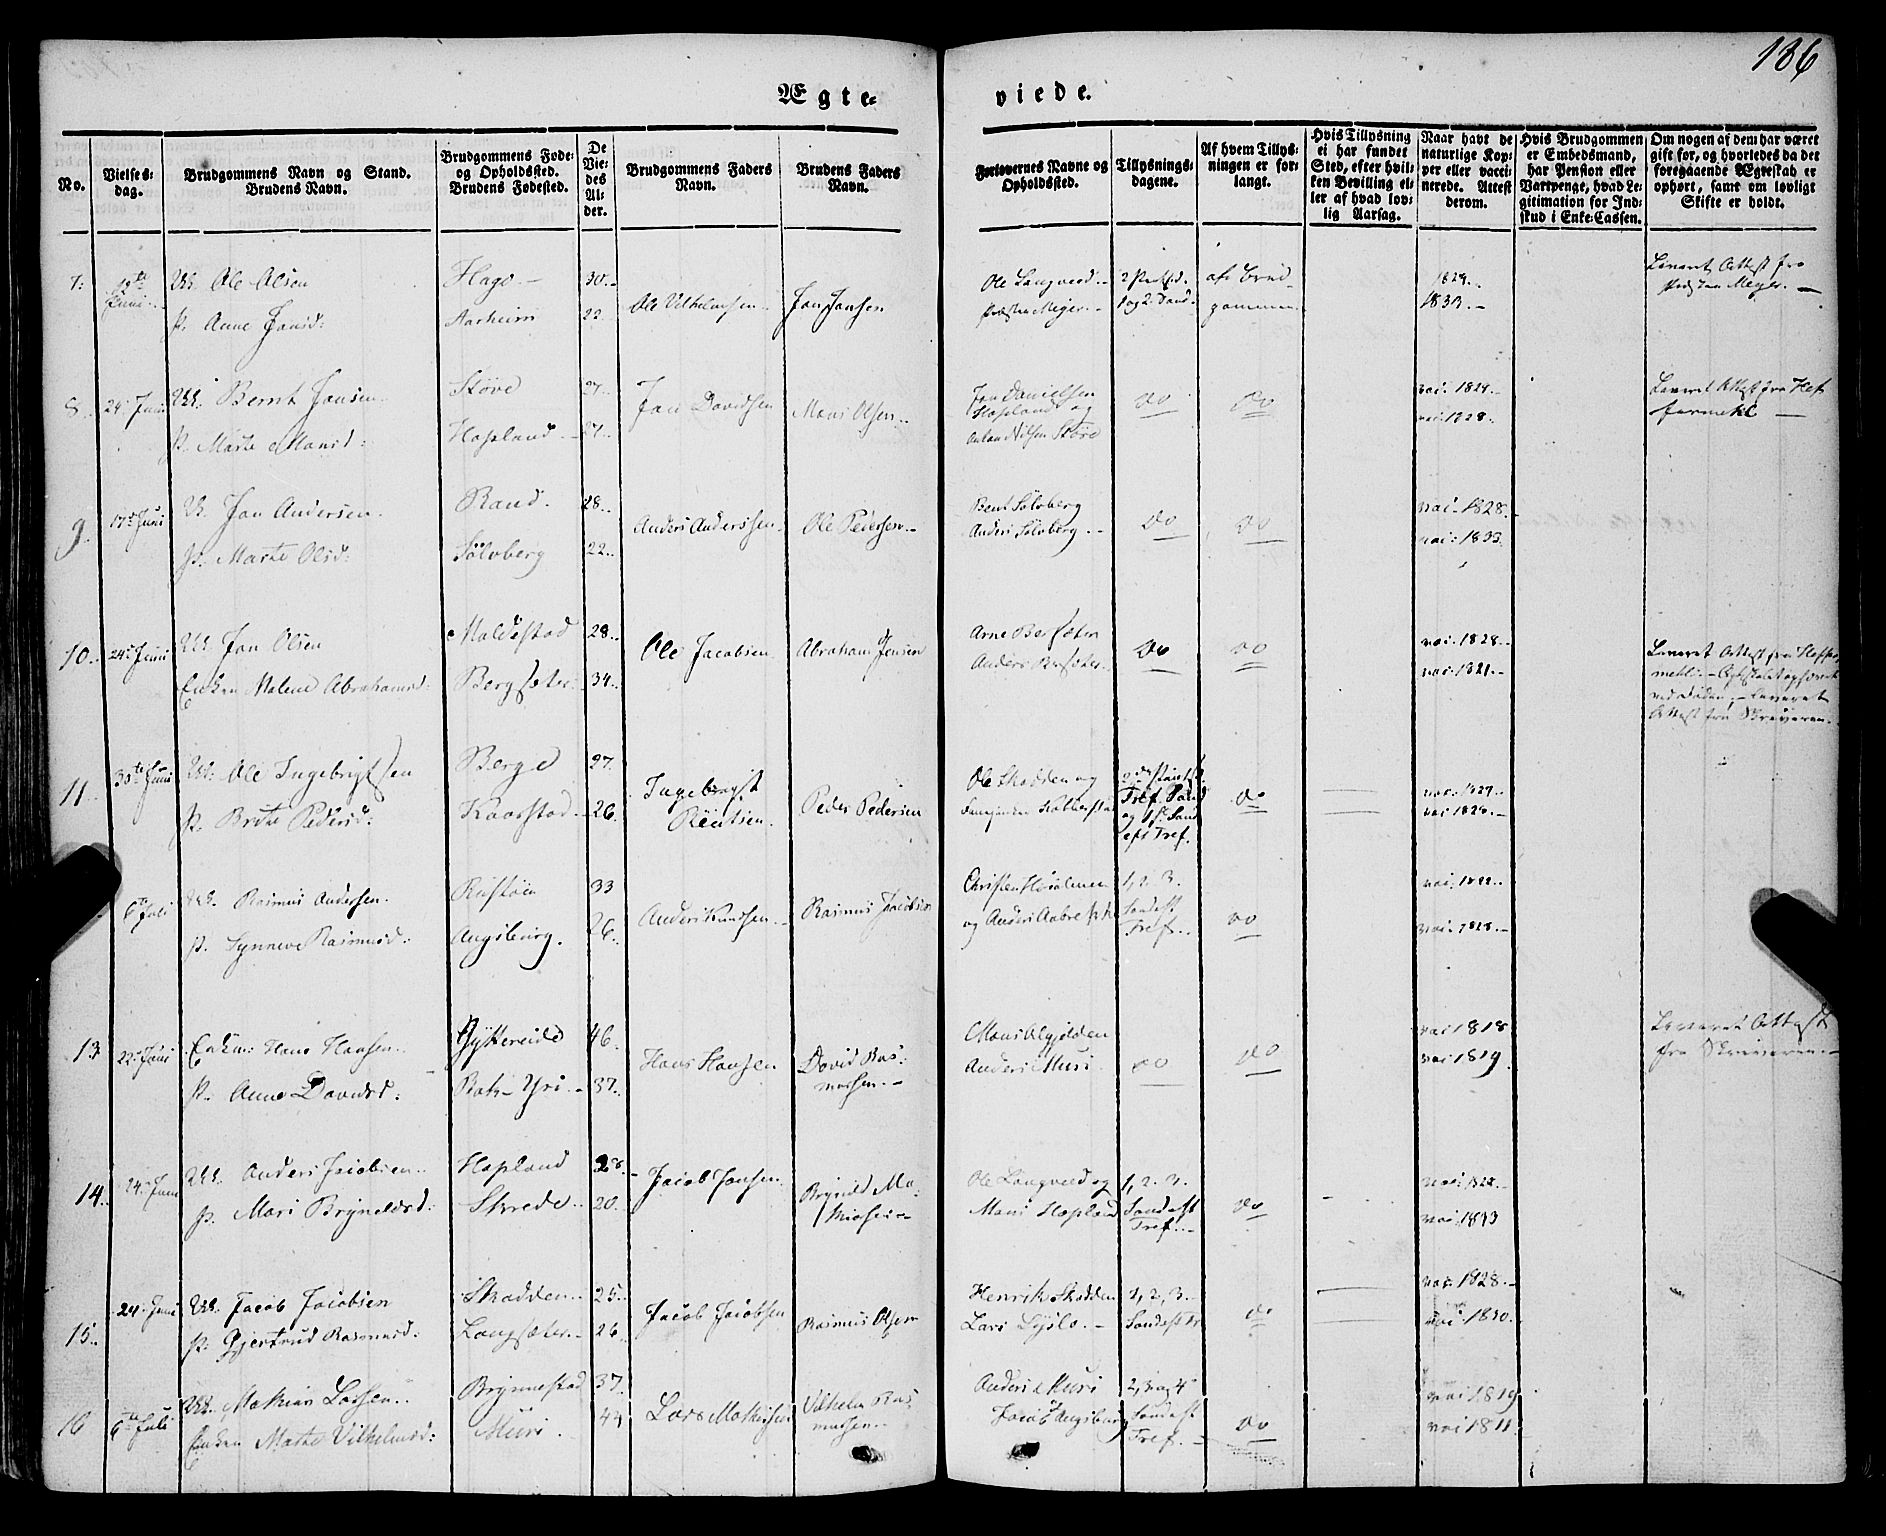 186
Ægte=
viede.
No.
Vielses=
dag.
Brudgommens Navn og Stand.
Brudens Navn.
Brudgommens Føde=
og Opholdssted.
Brudens Fødested.
De
Vie=
des
Al=
der.
Brudgommens Faders
Navn.
Brudens Faders
Navn.
Forlovernes Navne og
Opholdssted.
Tillysnings=
dagene.
Af hvem Tillys=
ningen er for=
langt.
Hvis Tillysning
ei har fundet
Sted, efter hvil=
ken Bevilling el=
ler af hvad lov=
lig Aarsag.
Naar havt de
naturlige Kop=
per eller vacci=
nerede. Attest
derom.
Hvis Brudgommen
er Embedsmand,
har Pension eller
Vartpenge, hvad Le=
gitimation for Ind=
skud i Enke=Cassen.
Om nogen af dem har været
gift før, og hvorledes da det
foregaaende Ægteskab er
ophørt, samt om lovligt
Skifte er holdt.
7.
12te
Juni
Uk. Ole Olsen
P. Anne Jansd:
Hage
Aarheim
30
22
Ole Vilhelmsen
Jan Jansen
Ole Langveed
1 og 2. Sønd.
af Brud
gommen
1829
1833
Leveret Attest fra
8
24. Juni
Uk. Bernt Jansen
P. Marte Monsd:
Støve
Hopland
27
27
Jan Davidsen
Mons Olsen
Jan Danielsen
Hopland og
Anton Nilsen Støve
do
do
vac. 1829
vac. 1828
Leveret Attest fra
9.
17. Juni
Uk. Jan Andersen
P. Marte Olsd:
Rand
Sølvberg
28
22
Anders Anderssen
Ole Pedersen
Bent Sølvberg
Anders Sølvberg
do
do
vac. 1828
vac. 1833
10.
24. Juni
Uk. Jan Olsen
Enken Malene Abrahamsd:
Maldestad
Bergsæter
28
34
Ole Jacobsen
Abraham Jensen
Arne Bersæter
Anders Bersæter
do
do
vac. 1828
vac. 1821
Leveret Attest fra
ved Døden, Leveret
Attest fra Skriveren
11
30te Juni
Uk. Ole Ingebrigtsen
P. Brite Pedersd:
Berge
Kaarstad
27
26
Ingebrigt
Peder Pedersen
Ole Skadden og
Tref. Sønd
og 1ste Sønd
eft Tref.
do
vac. 1829
6te Juli
Uk. Rasmus Andersen
P. Synneve Rasmusd:
Rustøen
Augsburg.
33
26
Anders Knudsen
Rasmus Jacobsen
og Anders Aabrekke
1, 2. 3.
Søndaft
Tref.
do
vac. 1828
13
22. Juni
Enkm: Hans Hansen
P. Anne Davidsd:
Gyttereide
46
37
Hans Hansen
David Ras=
mussen
Anders Muri
do
do
vac. 1818
vac. 1819
Leveret Attest
fra Skriveren
14.
24. Juni
Uk. Anders Jacobsen
P. Mari Brynildsd:
Hopland
Skrede
28
20
Jacob Jansen
Ole Langveed og
Mons Hopland
1, 2. 3.
Søndaft
Tref.
do
vac. 1833
15.
24. Juni
Uk. Jacob Jacobsen
P. Gjertrud Rasmusd.
Skadden
Langsæter
25
26
Jacob Jacobsen
Rasmus Olsen
Henrik Skadden
Lars Lyslo.
1, 2, 3.
Søndaft Tr
do
vac. 1828
vac. 1830
16
6te Juli
Uk. Mathias Larsen
Enken Marte Vilhelmsd:
Brynnestad
Muri
37
44
Lars Mathissen
Vilhelm Ras
mussen
Anders Muri
Jacob Augsburg
2, 3 og 4
Søndaft
Tref.
do
vac. 1819
vac. 1811